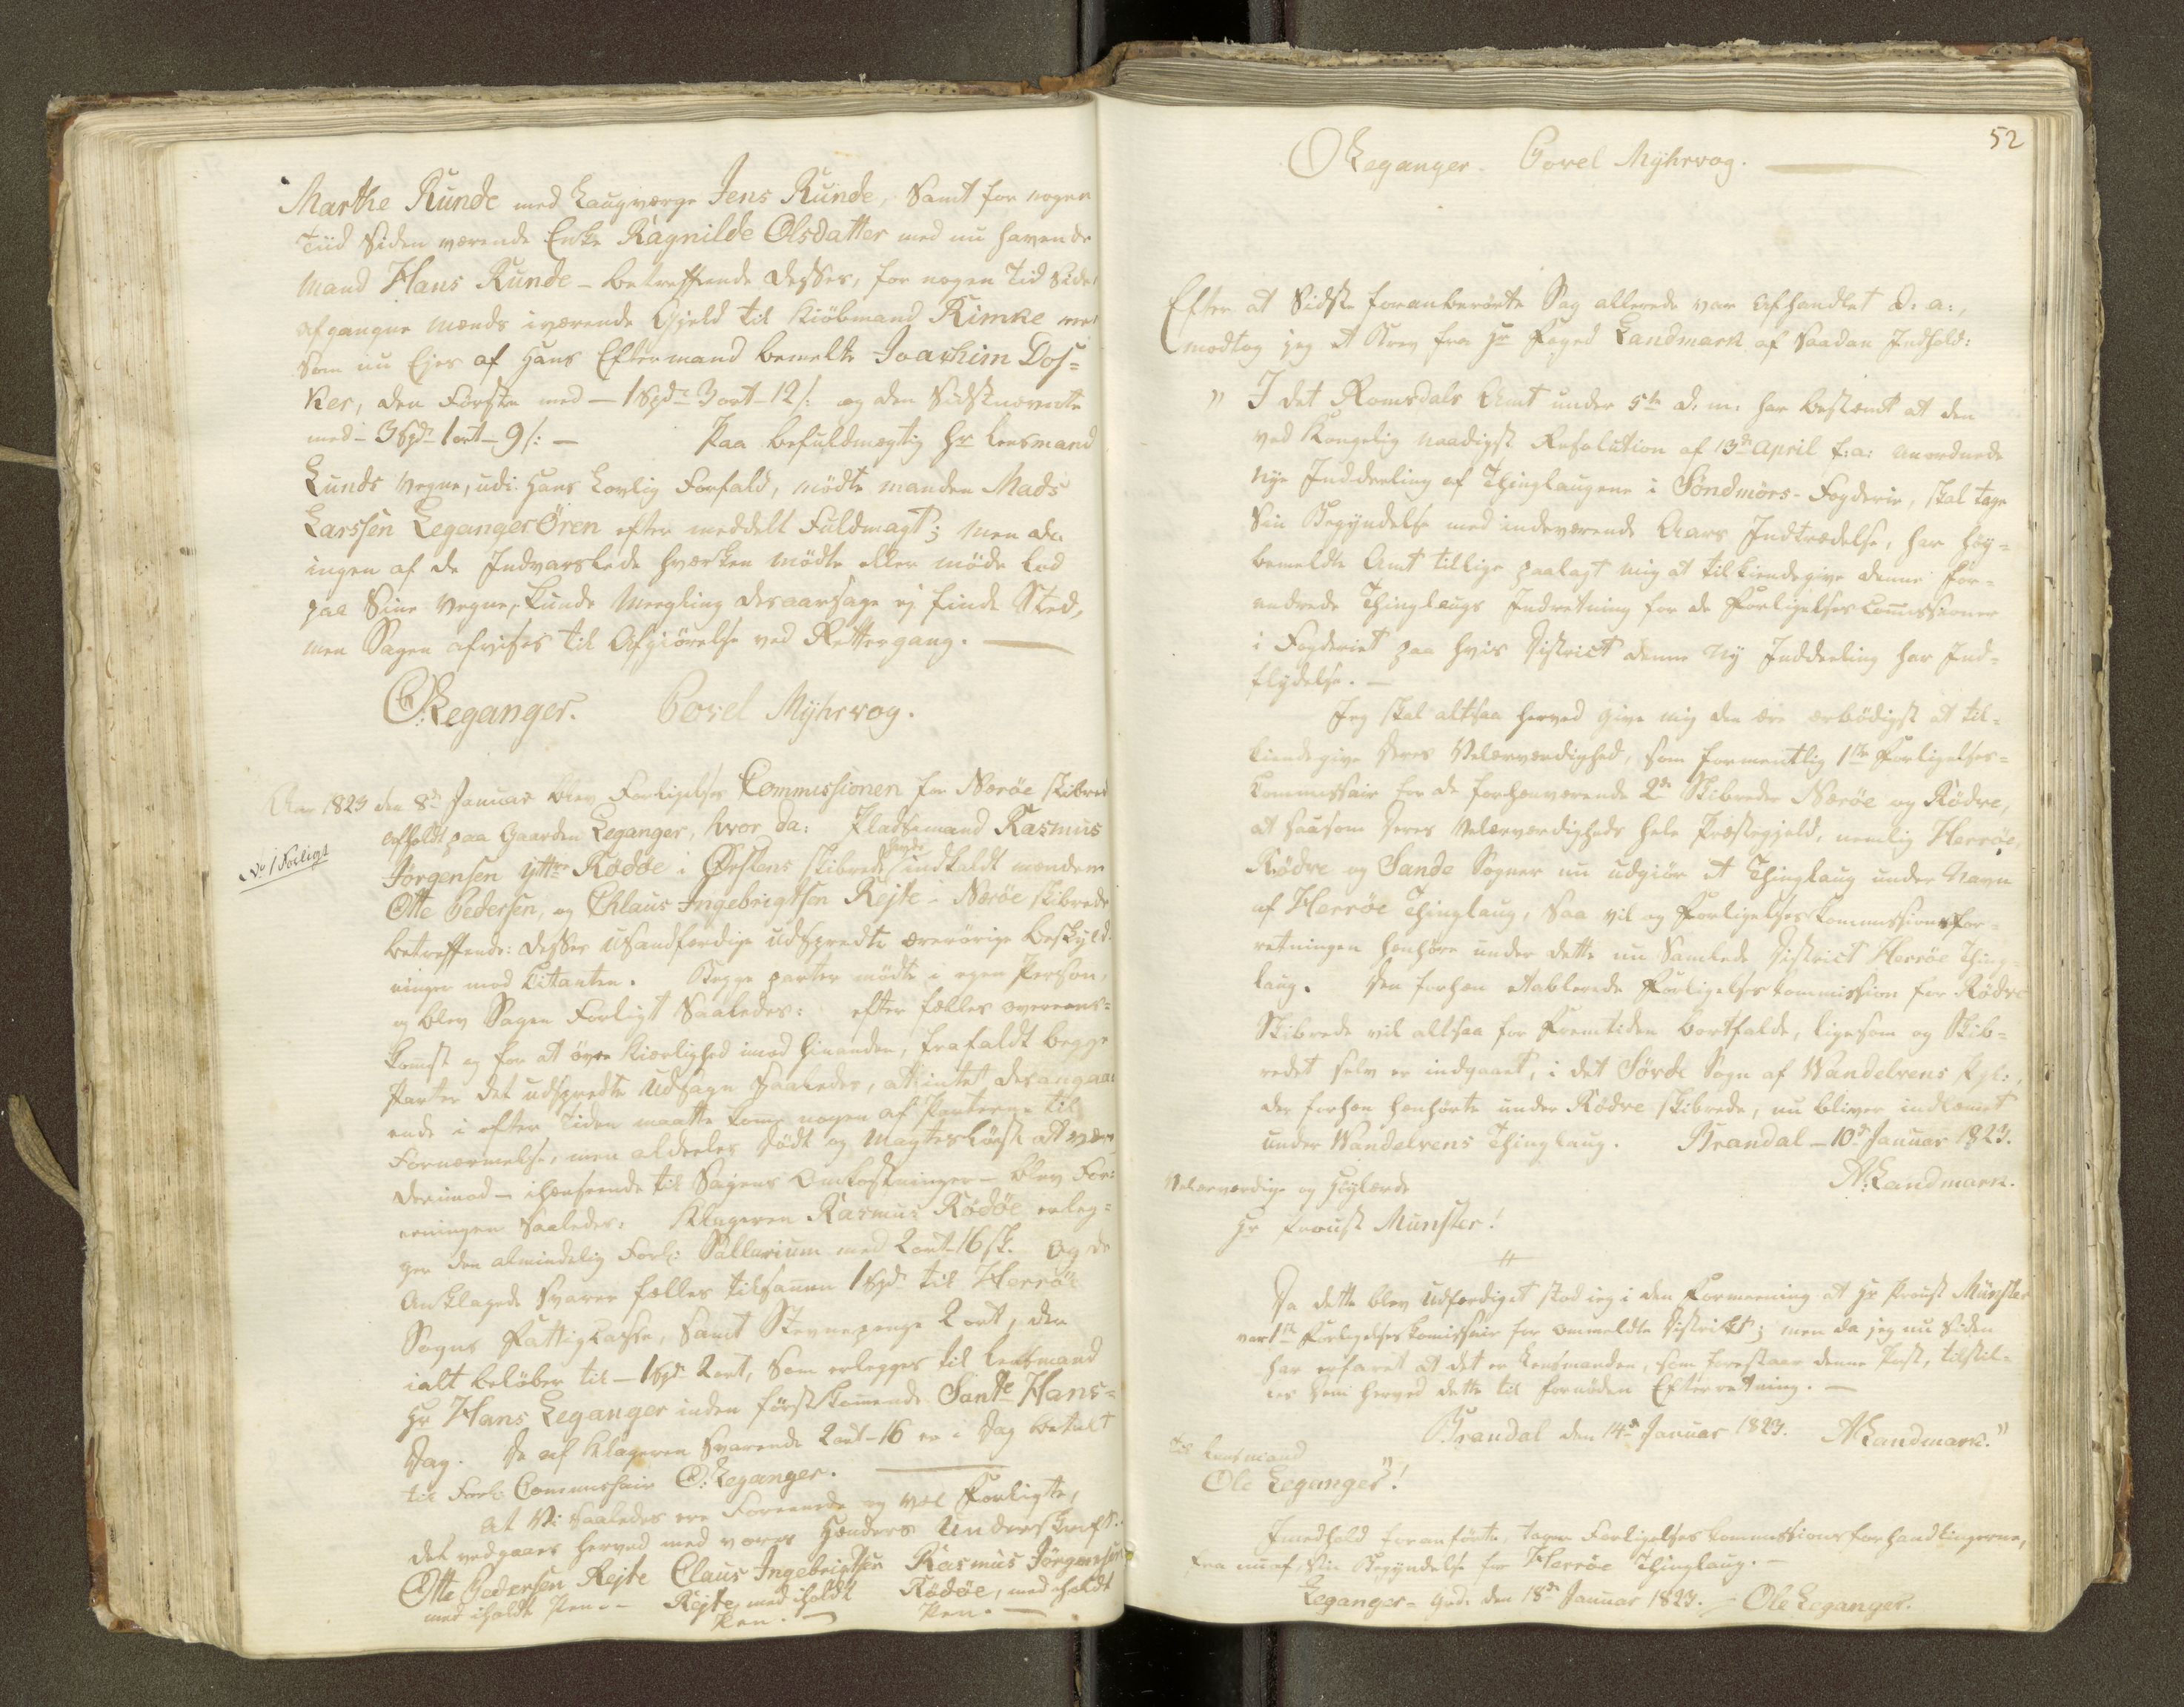 Marthe Runde med Laugværge Jens Runde, Samt for nogen
Tiid Siden værende Enke Ragnilde Olsdatter med nu havende
Mand Hans Runde - betreffende desses, for nogen Tid Siden
afgangne Mænds iværende Gjeld til Kiöbmand Rimke
som nu Ejes af Hans Eftermand bemelte Joachim Dos=
ker, den Förste med - 1 Spd 3 ort - 12 s: og den Sidstnævnte
med - 3 Spd 1 ort - 9 s: - Paa befuldmægtig Hr Lensmand
Lunds Vegne, udi Hans Lovlig Forfald, mödte manden Mads
Larssen LegangerÖren efter meddelt Fuldmagt; men da
ingen af de Indvarslede hverken mödte eller möde lod
paa Sine Vegne, kunde Mægling desaarsage ej finde Sted,
men Sagen afvises til Afgiörelse ved Rettergang.
O: Leganger. Povel Myhrvog.
Aar 1823 den 8de Januar blev Forligelses Commissionen for Neröe Skibred
afholdt paa Gaarden Leganger, hvor da: Pladsemand Rasmus
No 1 Forligt
Jörgensen Yttre Rödöe i Örstens Skibrede havde indkaldt manden
Otte Pedersen, og Chlaus Ingebrigtsen Rejte i Neröe Skibrede
betreffende: desses Usandfærdige udspredte ærerörige Beskyld-
ninger mod Citanten. Begge parter mödte i egen Person,
og blev Sagen Forligt Saaledes: efter fælles overeens=
komst og for at öve Kiærlighed imod hinanden, frafaldt begge
Parter det udspredte Udsagn Saaledes, at intet desangaa-
ende i efter Tiden maatte komme nogen af Parterne til
Fornærmelse, men aldeeles dödt og magteslöst at være
derimod - ihenseende til Sagens Omkostninger - blev For-
eeningen Saaledes: Klageren Rasmus Rödöe erleg=
ger den almindelig Forl: Sallarium med 2 ort - 16 sk. Og de
Anklagede Svarer fælles tilsammen 1 Spd til Herröe
Sogns Fattigkasse, Samt Stevnepenge 2 ort, den
ialt belöber til - 1 Spd 2 ort, som erlegges til Lensmand
Hr Hans Leganger inden förstkommende Sante Hans=
Dag. De af Klageren Svarende 2 ort - 16 er i Dag betalt
til Forl: Commissair O: Leganger.
At Vi Saaledes ere Foreenede og vel Forligte,
det vedgaaes herved med vores Hænders Underskrift.
Otte Pedersen Rejte Claus Ingebrigtsen Rasmus Jörgensen
med iholdt Pen. - Rejte, med iholdt Rödöe, med iholdt
Pen. - Pen. -
52
O Leganger. Povel Myhrvog.
Efter at Sidste foranberörte Sag allerede var afhandlet d: a:,
modtog jeg et Brev fra Hr Foged Landmark af saadan Indhold:
" I det Romsdals Amt under 5te d. m. har bestemt at den
ved Kongelig naadigst Resolution af 13de April f: a: anordnede
nye Inddeeling af Thinglaugene i Söndmörs-Fogderie, skal tage
Sin Begyndelse med indeværende Aars Indtrædelse, har höy=
bemeldte Amt tillige paalagt mig at tilkiendegive denne for=
andrede Thinglaugs Indretning for de Forligelses Commissioner
i Fogderiet paa hvis District denne ny Inddeeling har Ind=
flydelse. -
Jeg skal altsaa herved give mig den ære ærbödigst at til=
kiendegive Deres Velærværdighed, som formentlig 1ste Forligelses=
Commissair for de forhenværende 2de Skibreder Neröe og Rödve,
at saasom Deres Velærværdigheds hele Præstegjeld, nemlig Herröe,
Rödve og Sande Sogner nu udgiör et Thinglaug under Navn
af Herröe Thinglaug, saa vil og Forligelses Commissionsfor=
retningen henhöre under dette nu Samlede District Herröe Thing=
laug. Den forhen etablerede Forligelses Commission for Rödve
Skibrede vil altsaa for Fremtiden bortfalde, ligesom og Skib=
redet selv er indgaaet, i det Sörde Sogn af Wandelvens Pgl:,
der forhen henhörte under Rödve Skibrede, nu bliver indlemmet
under Wandelvens Thinglaug. Brandal - 10de Januar 1823.
A: Landmark.
Velærværdige og Höylærde
Hr Proust Münster!
Da dette blev Udfærdiget stod jeg i den Formeening at Hr Proust Münster
var 1ste Forligelses Commissair for ommeldte District; men da jeg nu Siden
har erfaret at det er Lensmanden, som forestaar denne Post, tilstil=
les ham herved dette til fornöden Efterretning. -
Brandal den 14de Januar 1823. A Landmark."
Til Lensmand
Ole Leganger"!
I medhold foranförte, tager Forligelses Commissions forhandlingerne,
fra nu af Sin Begyndelse for Herröe Thinglaug. -
Leganger - Grd. den 18de Januar 1823. - Ole Leganger.